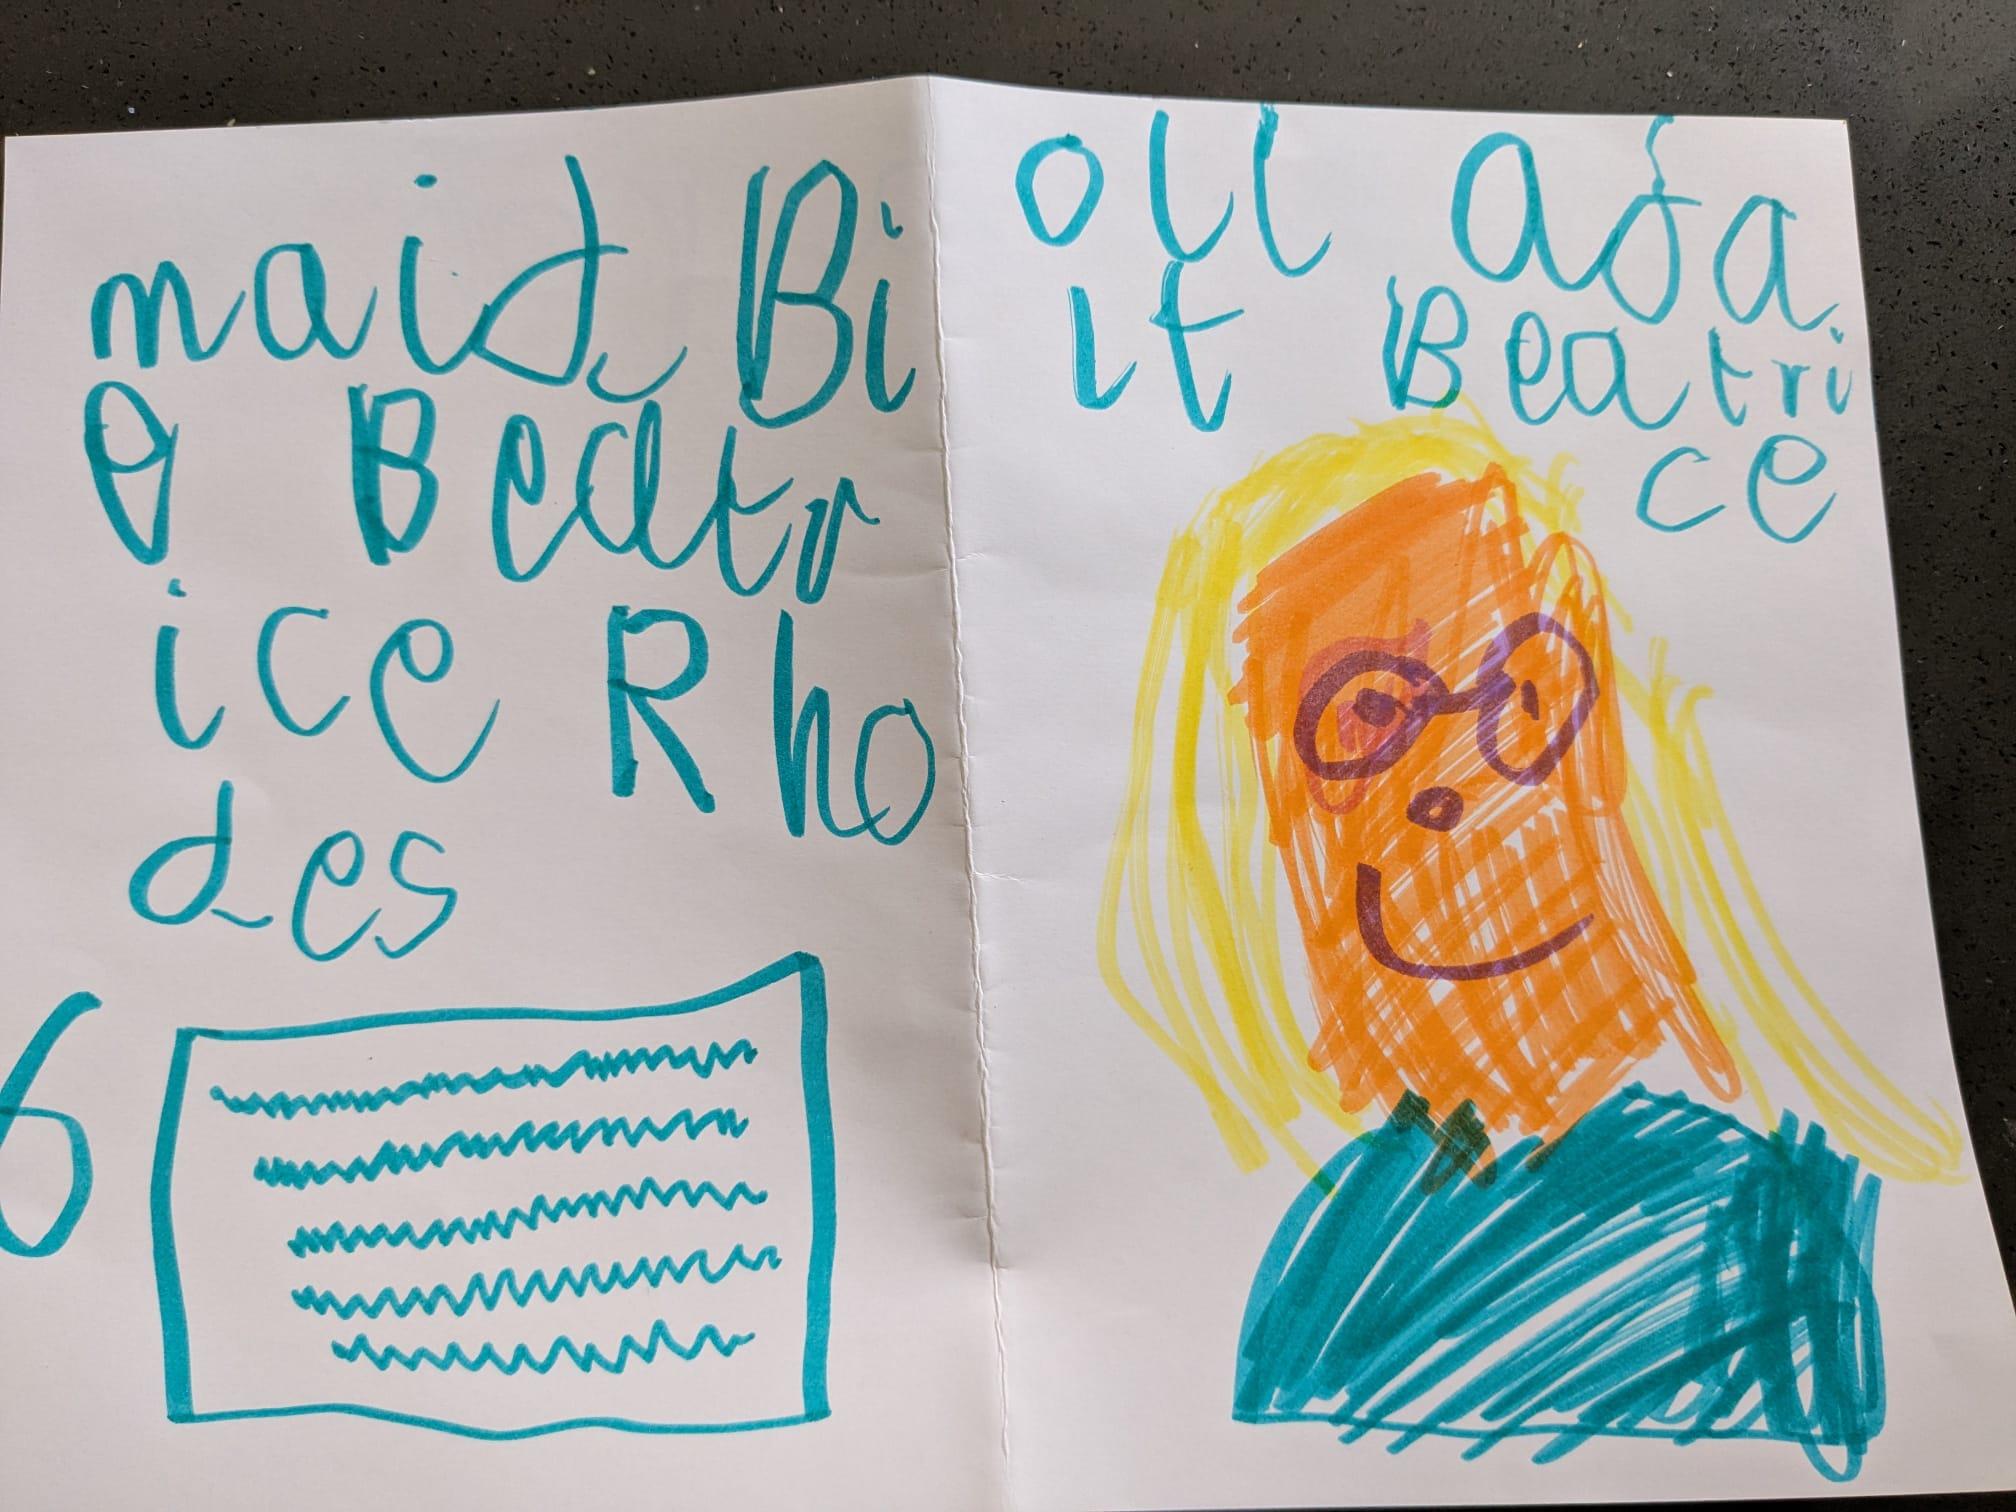 maid Bi
O Beatr
ice Rho
des
6
oll asa
it Beatri
ce